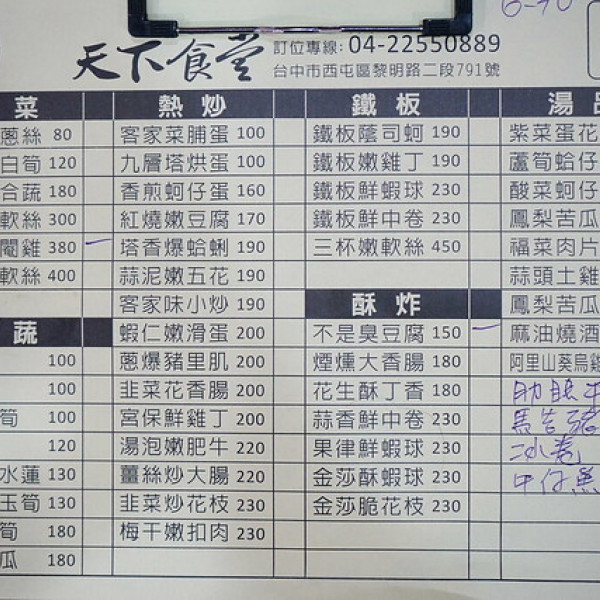 6-70
天下食堂
訂位專線: 04-22550889
台中市西屯區黎明路二段791號
菜
蔥絲 80
白筍 120
合蔬 180
軟絲 300
閹雞 380
軟絲 400
蔬
100
100
筍 100
120
水蓮 130
玉筍 130
筍 180
瓜 180
熱炒
客家菜脯蛋 100
九層塔烘蛋 100
香煎蚵仔蛋 160
紅燒嫩豆腐 170
塔香爆蛤蜊 190
蒜泥嫩五花 190
客家味小炒 190
蝦仁嫩滑蛋 200
蔥爆豬里肌 200
韭菜花香腸 200
宮保鮮雞丁 200
湯泡嫩肥牛 220
薑絲炒大腸 220
韭菜炒花枝 230
梅干嫩扣肉 230
鐵板
鐵板蔭司蚵 190
鐵板嫩雞丁 190
鐵板鮮蝦球 230
鐵板鮮中卷 230
三杯嫩軟絲 450
酥炸
不是臭豆腐 150
煙燻大香腸 180
花生酥丁香 180
蒜香鮮中卷 230
果律鮮蝦球 230
金莎酥蝦球 230
金莎脆花枝 230
湯
紫菜蛋花
蘆筍蛤仔
酸菜蚵仔
鳳梨苦瓜
福菜肉片
蒜頭土雞
鳳梨苦瓜
麻油燒酒
阿里山葵烏雞